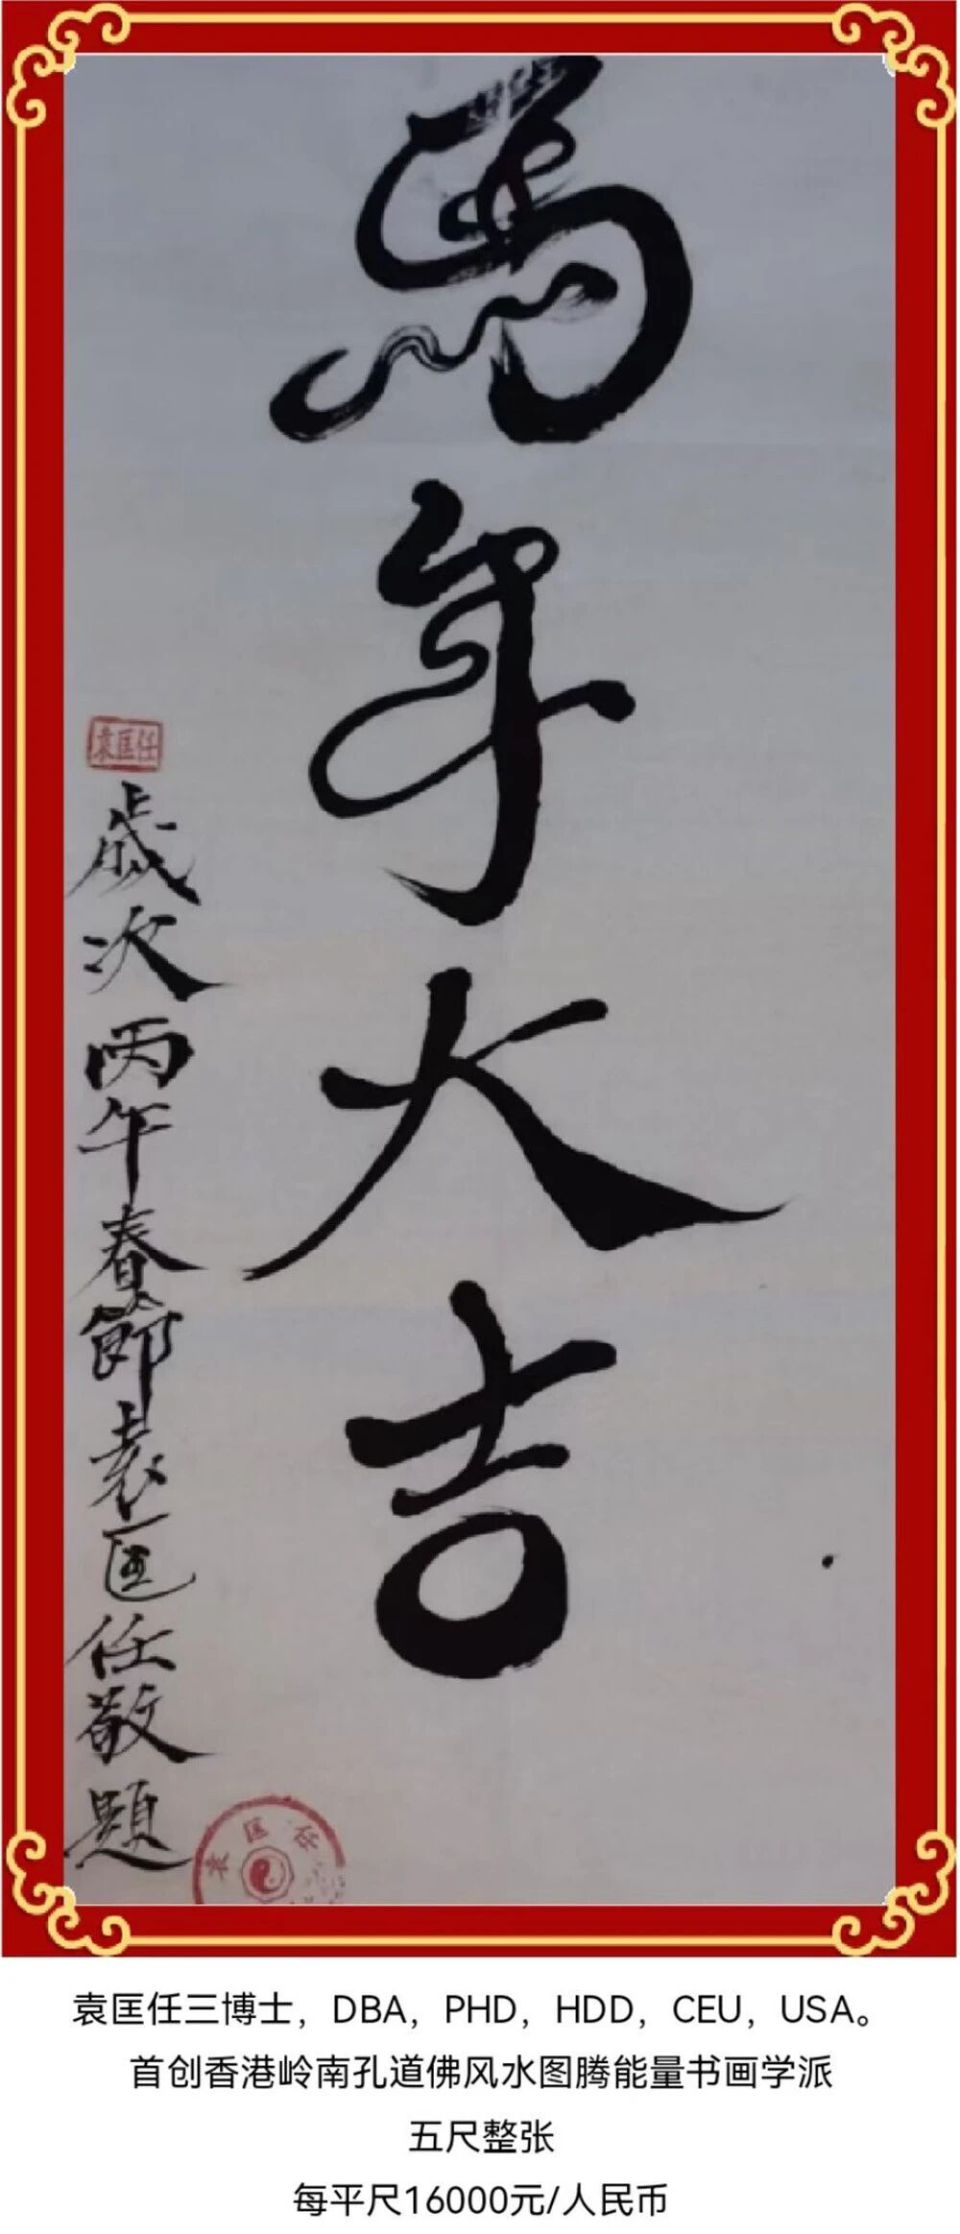 馬年大吉
歲次丙午春節袁匡任敬題
袁匡任
袁匡任
袁匡任三博士，DBA，PHD，HDD，CEU，USA。
首创香港岭南孔道佛风水图腾能量书画学派
五尺整张
每平尺16000元/人民币